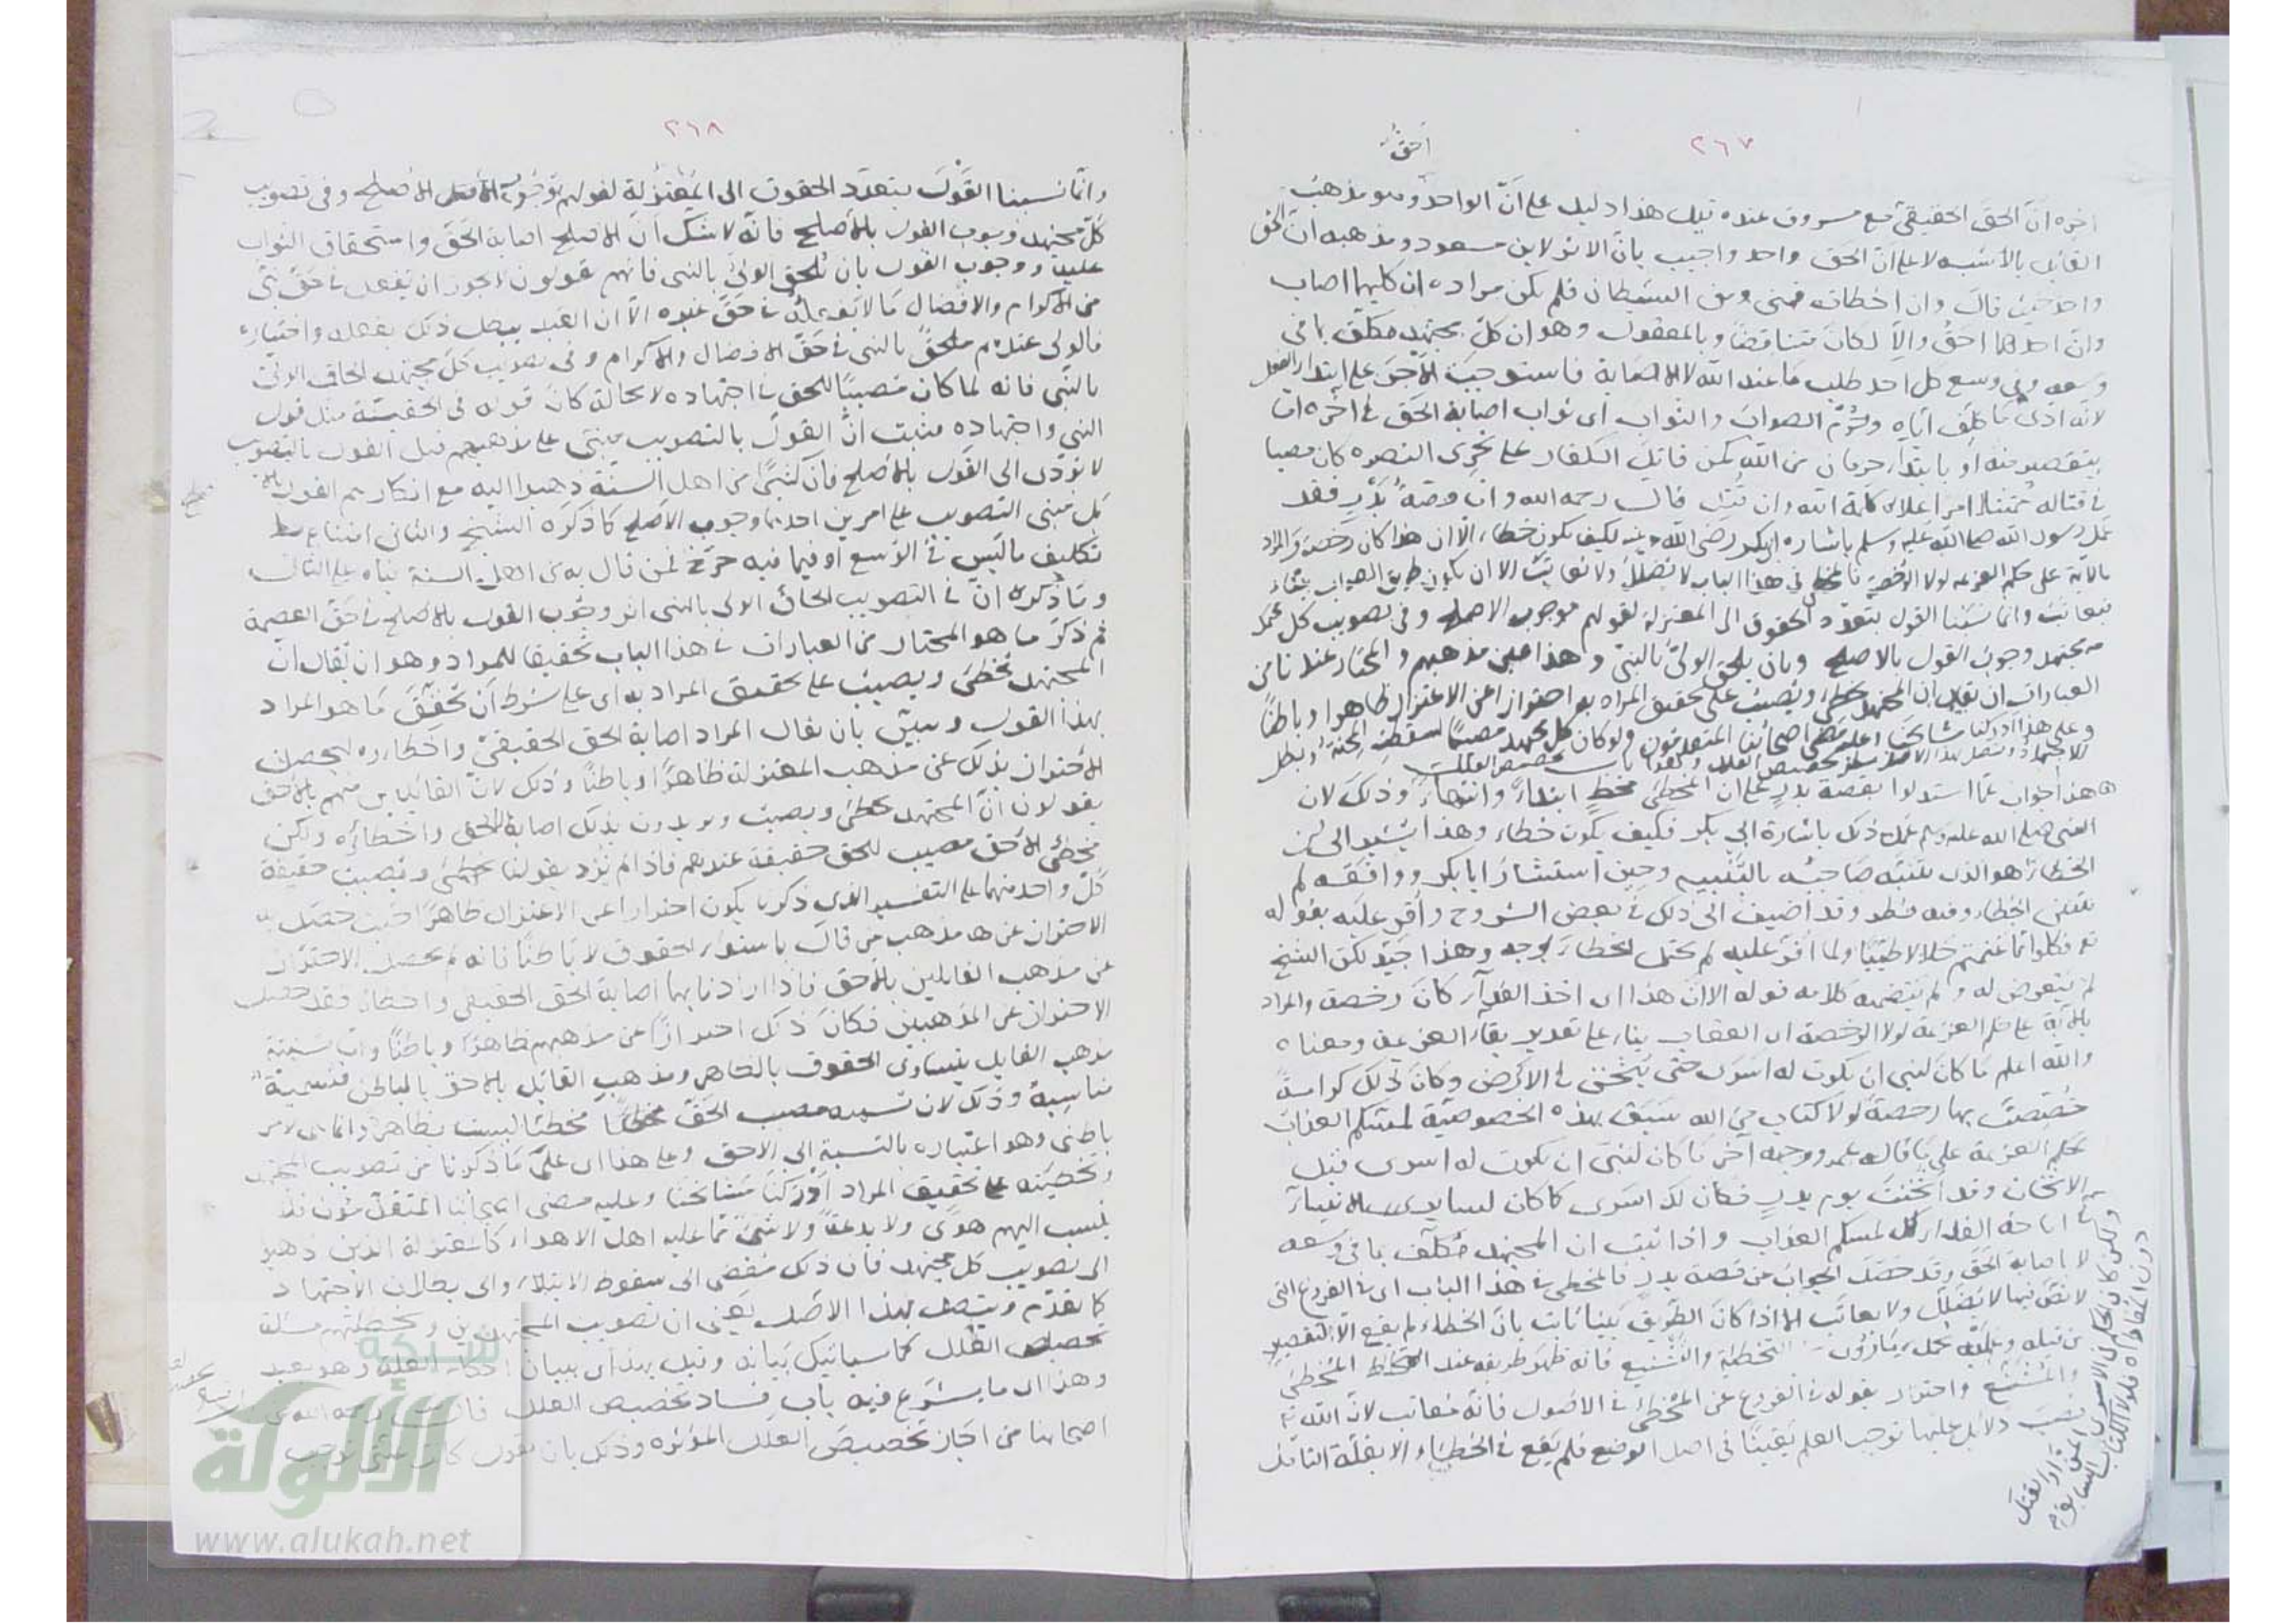 ٢٦٧
أحقّ
اخره انّ الحقّ الحقيقيّ مع مسروق عنده قيل هذا دليل على أنّ الواحد وهو مذهب
القائل بالأشبه لا على انّ الحقّ واحد واجيب بانّ الاثر لابن مسعود ومذهبه أنّ الحق
واحد حيث قال وان اخطأت فمنى ومن الشيطان فلم يكن مراده ان كليهما اصاب
وانّ احدهما احقّ والّا لكان متناقضا وبالمعقول وهو ان كلّ مجتهد مكلّف بما في
وسعه وفي وسع كل احد طلب ما عند الله لا الاصابة فاستوجب الأجر على ابتداء الفعل
لانّه ادّى ما كلّف ايّاه وحُرِّم الصواب والثواب اى ثواب اصابة الحقّ في اخره امّا
بتقصير منه او بابتداء حرمان من الله كمن قاتل الكفّار على تحرّى النصره كان مصيبا
في قتاله ممتثلا امر اعلاء كلمة الله وان قُتل قال رحمه الله وامّا قصّة بدر فقد
عمل رسول الله صلى الله عليه وسلم باشارة ابى بكر رضى الله عنه فكيف يكون خطاء الّا ان هذا كان رخصة والمراد
بالآية على حكم العزيمه لولا الرخصة فالمخطئ في هذا الباب لا يضلّل ولا يعاتب الا ان يكون طريق الصواب بيّنا
فيعاتب وانما نسبنا القول بتعدّد الحقوق الى المعتزلة لقولهم بوجوب الاصلح وفى تصويب كل
مجتهد وجوب القول بالاصلح وبان يلحق الولىّ بالنبىّ وهذا عين مذهبهم والمختار عندنا من
العبارات ان يقال ان المجتهد يخطئ ويصيب على تحقيق المراد به احترازا عن الاعتزال ظاهرا وباطنًا
وعلى هذا ادركنا مشايخنا وعليه مضى اصحابنا المتقدمون ولو كان كل مجتهد مصيبًا لسقطت المحنة وبطل
الاجتهاد ويتصل بهذا الاصل تخصيص العلل باب تخصيص العلل
هذا جواب عمّا استدلوا بقصة بدر على ان المخطئ مخطٍ ابتداءً وانتهاءً وذلك لان
النبى صلى الله عليه وسلم عمل ذلك باشارة ابى بكر فكيف يكون خطاء وهذا يشير الى ان
الخطاء هو الذى يتنبّه صاحبُه بالتنبيه وحين استشار ابا بكر ووافقه لم
ينتف الخطاء وفيه نظر وقد اضيف الى ذلك في بعض الشروح واُقرّ عليه بقوله
تع فكلوا ممّا غنمتم حلالا طيبًا ولمّا اُقرّ عليه لم يحتمل الخطاء بوجه وهذا جيّد لكن الشيخ
لم يتعرض له ولم يتضمنه كلامه قوله الا ان هذا اى اخذ الفداء كان رخصة والمراد
بالآية على حكم العزيمة لولا الرخصة اى العقاب بناء على تقدير بقاء العزيمة ومعناه
والله اعلم ما كان لنبى ان يكون له اسرى حتى يثخن في الارض وكان ذلك كرامةً
خُصِّصتَ بها رخصةً لولا كتاب من الله سبق بهذه الخصوصيّة لمسّكم العذاب
بحكم العزيمة على ما قاله عمر ووجه آخر ما كان لنبى ان يكون له اسرى قبل
الاثخان وقد اثخنت يوم بدر فكان لك اسرى كما كان لسائر الانبياء
لمسّكم العذاب واذا ثبت ان المجتهد مكلّف بما في وسعه
لا اصابة الحقّ وقد حصل الجواب عن قصة بدر فالمخطئ في هذا الباب اى في الفروع التى
لا نصّ فيها لا يضلّل ولا يعاتَب الا اذا كان الطريق بيّنا ثابت بانّ الخطاء لم يقع الّا لتقصير
التخطئة والتشنيع فانه ظهر طريقه عند المخطئ
والمشنِّع واحترز بقوله في الفروع عن المخطئ في الاصول فانّه مُعاتب لانّ الله تع
نصب دلائل عليها توجب العلم يقينًا في اصل الوضع فلم يقع في الخطاء الا بقلّة التامّل
٢٦٨
وانّما نسبنا القول بتعدّد الحقوق الى المعتزلة لقولهم بوجوب الاصلح وفى تصويب
كلّ مجتهد وجوب القول بالأصلح فانّه لا شكّ انّ الاصلح اصابة الحقّ واستحقاق الثواب
عليه ووجوب القول بان يُلحق الولىّ بالنبى فانهم يقولون لا يجوز ان يفعل في حقّ نبىّ
من الاكرام والافضال ما لا يفعله في حقّ غيره الّا ان العبد يبطل ذلك بفعله واختياره
فالولى عندهم ملحقٌ بالنبى في حقّ الافضال والاكرام وفى تصويب كلّ مجتهد الحاق الولىّ
بالنّبى فانه لما كان مصيبًا للحق في اجتهاده لا محالة كان قوله في الحقيقة مثل قول
النبى واجتهاده فثبت انّ القول بالتصويب مبنىّ على مذهبهم قيل القول بالتصويب
لا يؤدّى الى القول بالأصلح فانّ كثيرًا من اهل السنّة ذهبوا اليه مع انكارهم القول بالا
بل مبنى التصويب على امرين احدهما وجوب الاصلح كما ذكره الشيخ والثانى امتناع
تكليف ما ليس في الوسع او فيما فيه حرج فمن قال به من اهل السنة بناه على الثانى
وما ذكره انّ في التصويب الحاق الولى بالنبى اثر وجوب القول بالاصلح في حقّ العصمة
ثم ذكر ما هو المختار من العبارات في هذا الباب تحقيقًا للمراد وهو ان يقال انّ
المجتهد يخطئ ويصيب على تحقيق المراد به اى على شرط ان تحقّق ما هو المراد
بهذا القول ويبيّن بان يقال المراد اصابة الحق الحقيقىّ واخطاؤه ليحصل
الاحتراز بذلك عن مذهب المعتزلة ظاهرًا وباطنًا وذلك لانّ القائلين منهم بالاحق
يقولون انّ المجتهد يخطئ ويصيب ويريدون بذلك اصابة الاحق واخطاؤه ولكن
مخطئ الاحق مصيب للحق حقيقة عندهم فاذا لم نُرد بقولنا يخطئ ويصيب حقيقة
كلّ واحد منهما على التفسير الذى ذكرنا يكون احترازا عن الاعتزال ظاهرًا حيث حصل به
الاحتراز عن مذهب من قال باستواء الحقوق لا باطنًا فانه لم يحصل الاحتراز
عن مذهب القائلين بالاحق فاذا اردنا بهما اصابة الحق الحقيقى واخطاءه فقد حصل
الاحتراز عن المذهبين فكان ذلك احترازًا عن مذهبهم ظاهرًا وباطنًا وانما سميته
مذهب القائل بتساوى الحقوق بالظاهر ومذهب القائل بالاحق بالباطن فتسمية
مناسبة وذلك لان تسمية مصيب الحقّ مخطئًا ليست بظاهرة وانما هى لامر
باطنى وهو اعتباره بالنسبة الى الاحق وعلى هذا اى على ما ذكرنا من تصويب المجتهد
وتخطيته على تحقيق المراد ادركنا مشايخنا وعليه مضى اصحابنا المتقدّمون فلا
يُنسب اليهم هوًى ولا بدعةٌ ولا شئ ممّا عليه اهل الاهواء كالمعتزلة الذين ذهبوا
الى تصويب كلّ مجتهد فانّ ذلك مُفضٍ الى سقوط الابتلاء والى بطلان الاجتهاد
كما تقدّم ويتصل بهذا الأصل يعنى ان تصويب المجتهدين وتخطئتهم مسئلة
تخصيص العلل كما سيأتيك بيانه وقيل بهذا اى ببيان احكام العلة وهو بعيد
وهذا اى ما يشرع فيه باب فساد تخصيص العلل قال رحمه الله
اصحابنا من اجاز تخصيص العلل المؤثره وذلك بان يقول كانت علّتى توجب
شبكة
الألوكة
www.alukah.net